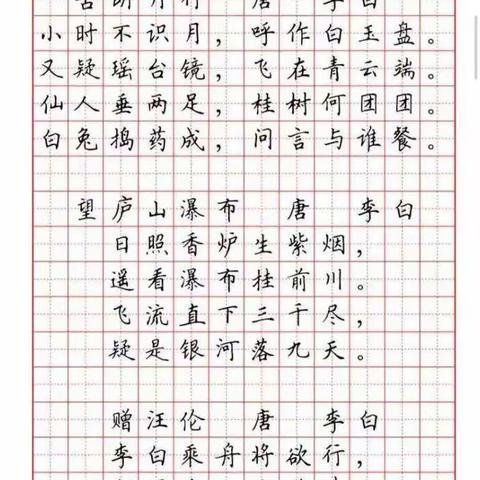 古朗月行 唐 李白
小时不识月，呼作白玉盘。
又疑瑶台镜，飞在青云端。
仙人垂两足，桂树何团团。
白兔捣药成，问言与谁餐。
望庐山瀑布 唐 李白
日照香炉生紫烟，
遥看瀑布挂前川。
飞流直下三千尺，
疑是银河落九天。
赠汪伦 唐 李白
李白乘舟将欲行，